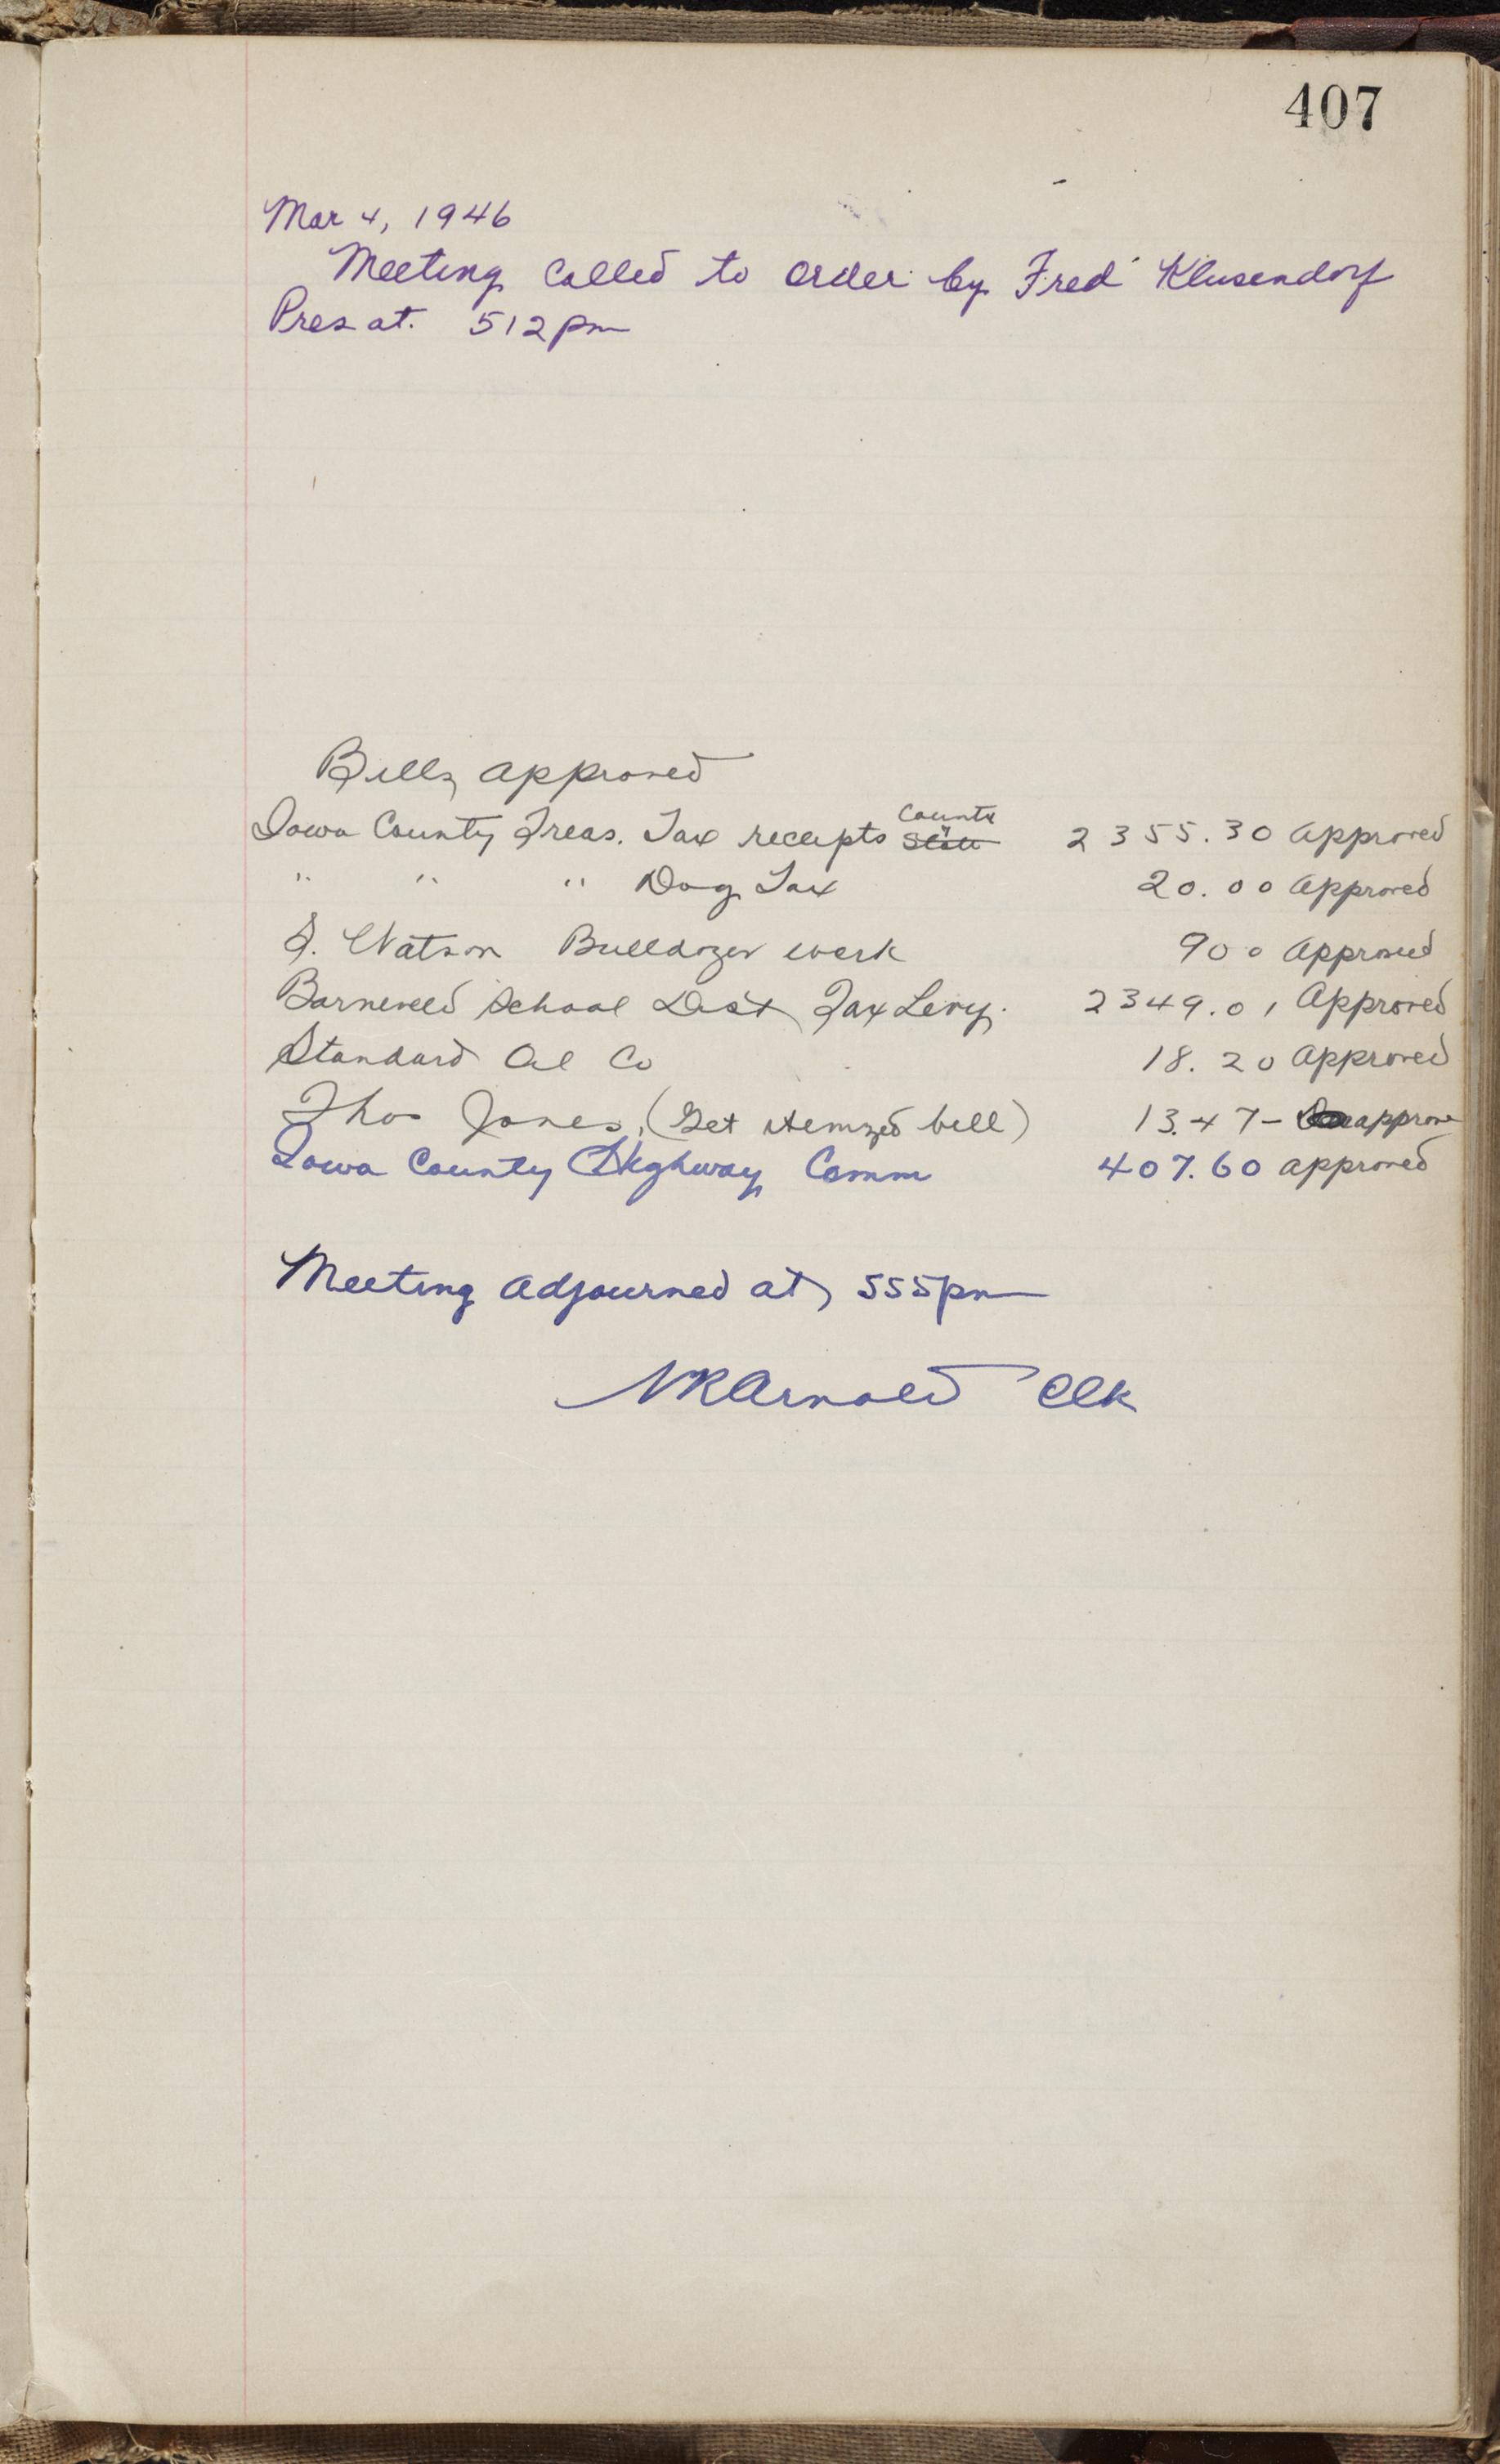 407
Mar 4, 1946
Meeting called to order by Fred Klusendorf
Pres at. 512 pm
Bills approved
County
Iowa County Treas. Tax receipts State 2355.30 Approved
" " " Dog Tax 20.00 Approved
S. Watson Bulldozer work 900 Approved
Barneveld School Dist Tax Levy. 2349.01 Approved
Standard Oil Co 18.20 Approved
Thos Jones, (Get itemized bill) 13.47 - approve
Iowa County Highway Comm 407.60 approved
Meeting adjourned at 555 pm
NRArnold Clk